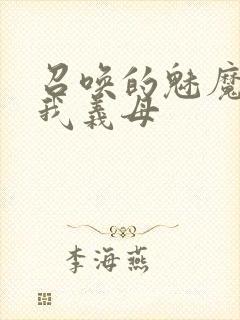 召唤的魅魔
我義母
李海燕